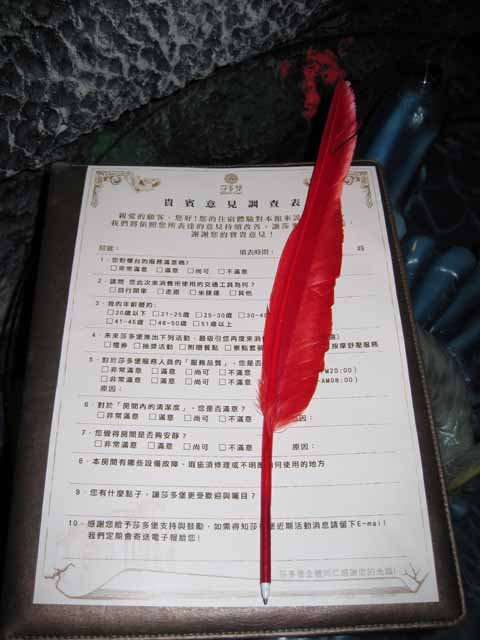 莎多堡
貴賓意見調查表
親愛的顧客，您好!您的住宿體驗對本館來說
我們將依照您所表達的意見持續改善，讓莎
謝謝您的寶貴意見！
房號： 填表時間： 時
1、您對櫃台的服務滿意嗎?
□非常滿意 □滿意 □尚可 □不滿意
2、請問 您此次來消費所使用的交通工具為何?
□自行開車 □走路 □坐捷運 □其他
3、我的年齡層約:
□20歲以下 □21-25歲 □25-30歲 □30-4
□41-45歲 □46-50歲 □51歲以上
4、未來莎多堡推出下列活動，最吸引您再度來消
□禮券 □抽獎活動 □附贈餐點 □景點套裝 按摩紓壓服務
5、對於莎多堡服務人員的「服務品質」，您是否
□非常滿意 □滿意 □尚可 □不滿意 PM20:00)
□非常滿意 □滿意 □尚可 □不滿意 -AM08:00)
原因：
6、對於「房間內的清潔度」，您是否滿意？
□非常滿意 □滿意 □尚可 □不滿意 原因：
7、您覺得房間是否夠安靜？
□非常滿意 □滿意 □尚可 □不滿意 原因：
8、本房間有哪些設備故障、瑕疵須修理或不明 何使用的地方
9、您有什麼點子，讓莎多堡更受歡迎與矚目？
10、感謝您給予莎多堡支持與鼓勵，如需得知莎 堡近期活動消息請留下E-mail
我們定期會寄送電子報給您!
莎多堡全體同仁感謝您的光臨!